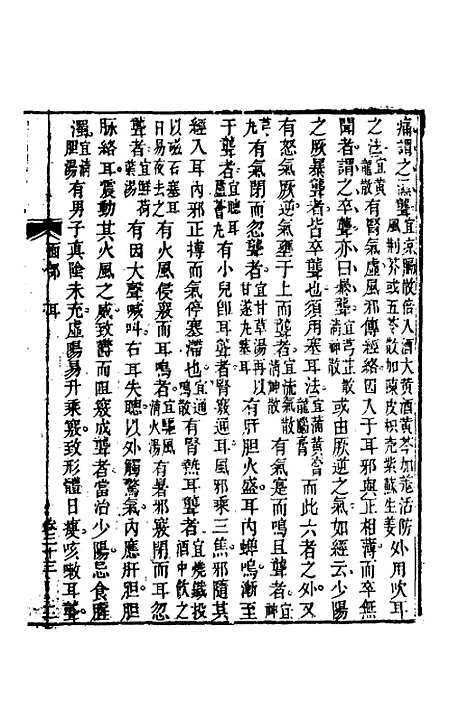 痛謂之聾宜涼膈散倍入酒大黃酒黃芩加羗活防風荆芥或五苓散加陳皮枳壳紫蘇生姜外用吹耳
之法宜黃龍散有腎氣虛風邪傳經絡因入于耳邪與正相薄而卒無
聞者謂之卒聾亦曰暴聾宜芎芷散清神散或由厥逆之氣如經云少陽
之厥暴聾者皆卒聾也須用塞耳法宜蒲黃膏龍腦膏而此六者之外又
有怒氣厥逆氣壅于上而聾者宜流氣散清神散有氣蹇而鳴且聾者宜神
芎丸有氣閉而忽聾者宜甘草湯再以甘遂丸塞耳有肝胆火盛耳内蟬鳴漸至
于聾者宜聰耳蘆薈丸有小兒卽耳聾者腎竅通耳風邪乘三焦邪隨其
經入耳内邪正搏而氣停塞滯也宜通鳴散有腎熱耳聾者宜燒鐵投酒中飲之
以磁石塞耳日易夜去之有火風侵竅而耳鳴者宜驅風清火湯有暑邪竅閉而耳忽
聾者宜鮮荷葉湯有因大聲喊叫右耳失聰以外觸驚氣内應肝胆胆
脉絡耳震動其火風之威致鬱而阻竅成聾者當治少陽忌食腥
濁宜清胆湯有男子真陰未充虛陽易升乘竅致形體日瘦咳嗽耳聾
面部 耳
卷三十三